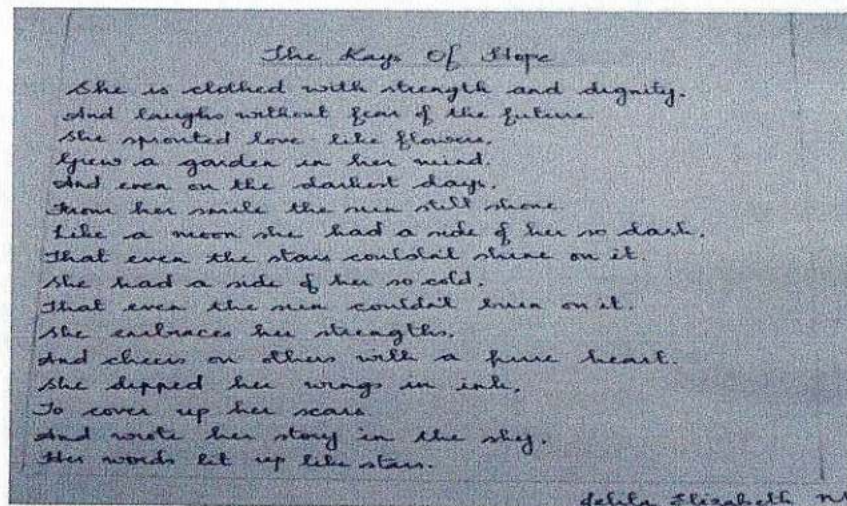 The Rays Of Hope
She is clothed with strength and dignity.
And laughs without fear of the future
She sprouted love like flowers.
Grew a garden in her mind.
And even on the darkest days.
From her smile the sun still shone.
Like a moon she had a side of her so dark.
That even the stars couldn't shine on it.
She had a side of her so cold.
That even the sun couldn't burn on it.
She embraces her strengths.
And cheers on others with a pure heart.
She dipped her wings in ink,
To cover up her scars
And wrote her story in the sky.
Her words lit up like stars.
Elizabeth